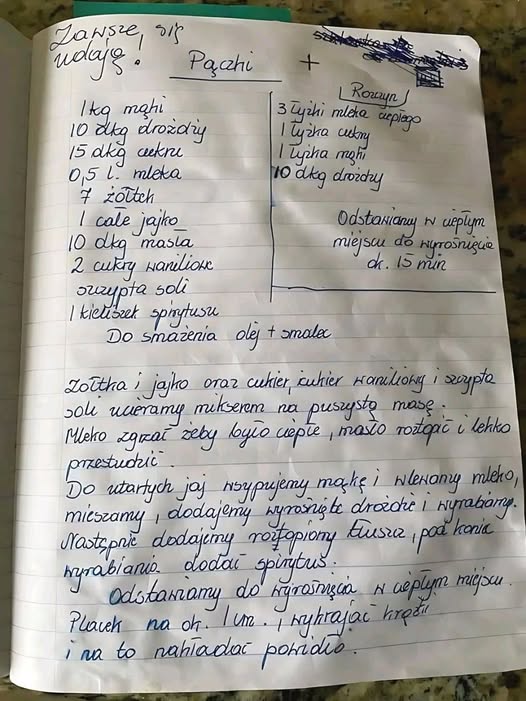 Zawsze, się
udają!
Pączki +
1 kg mąki
10 dkg drożdży
15 dkg cukru
0,5 l. mleka
7 żółtek
1 całe jajko
10 dkg masła
2 cukry waniliowe
szczypta soli
1 kieliszek spirytusu
Do smażenia olej + smalec
Rozczyn
3 łyżki mleka ciepłego
1 łyżka cukry
1 łyżka mąki
10 dkg drożdży
Odstawiamy w ciepłym
miejscu do wyrośnięcia
ok. 15 min
Żółtka i jajko oraz cukier, cukier waniliowy i szczypta
soli ucieramy mikserem na puszystą masę.
Mleko zgrzać żeby było ciepłe, masło roztopić i lekko
przestudzić.
Do utartych jaj wsypujemy mąkę i wlewamy mleko,
mieszamy, dodajemy wyrośnięte drożdże i wyrabiamy.
Następnie dodajemy roztopiony tłuszcz, pod koniec
wyrabiania dodać spirytus.
Odstawiamy do wyrośnięcia w ciepłym miejscu.
Placek na ok. 1 cm. , wykrajać krążki
i na to nakładać powidło.